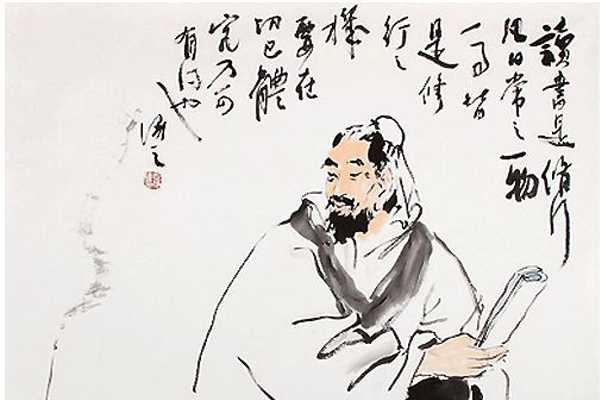 讀書是修行
日常之一物
一事皆
是修
行之
要在
切己體
究乃可
有得也